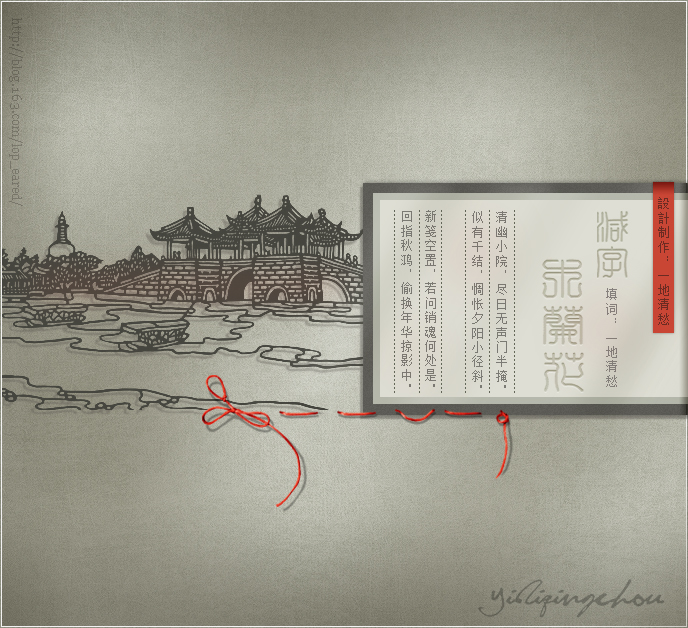 設計制作：一地清愁
減字
木蘭花
填词：一地清愁
清幽小院，尽日无声门半掩。
似有千结，惆怅夕阳小径斜。
新笺空置，若问销魂何处是。
回指秋鸿，偷换年华掠影中。
http://blog.163.com/lop_eared/
yidiqingchou